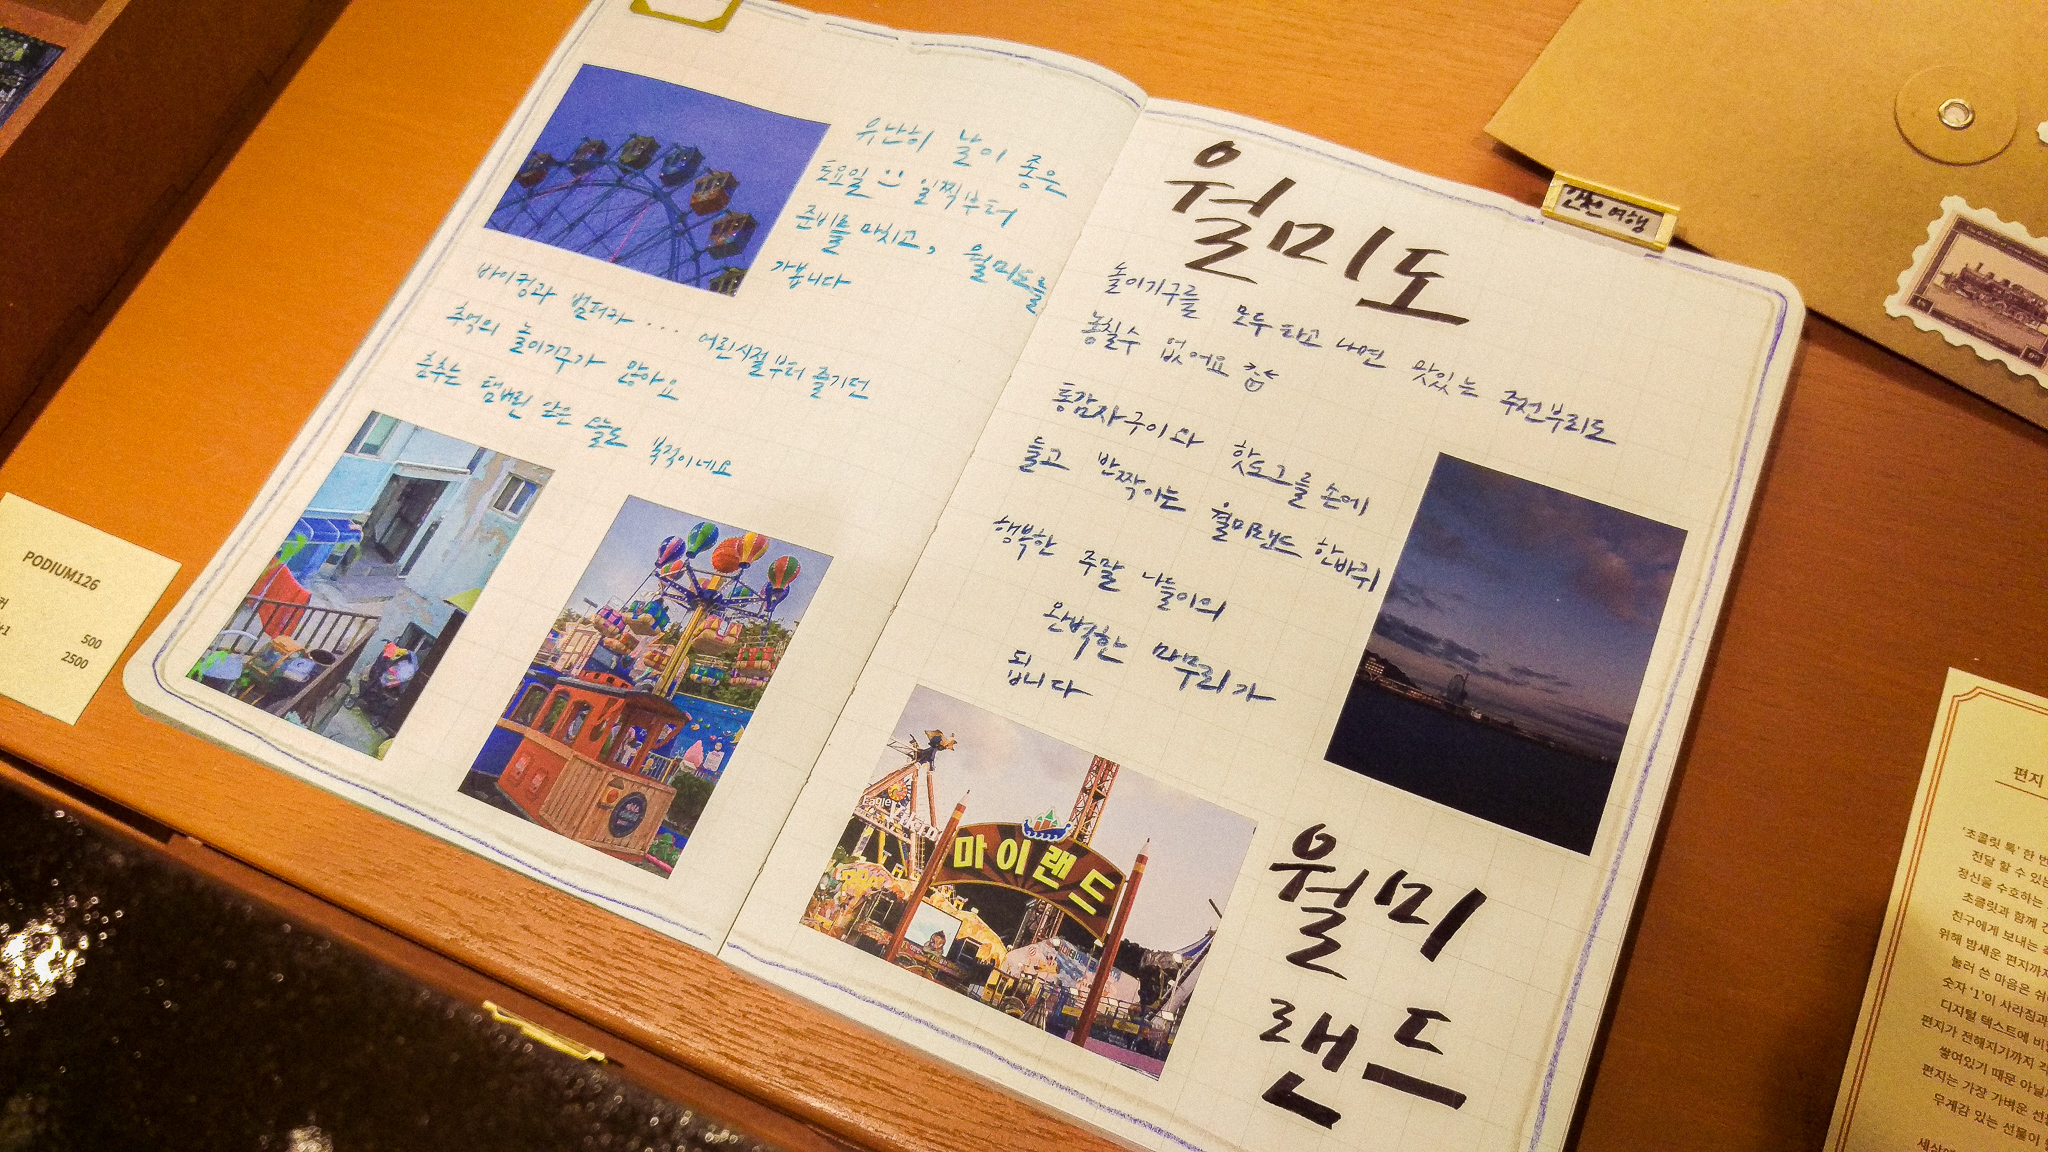 유난히 날이 좋은
토요일 일찍부터
준비를 마치고, 월미도를
가봅니다
바이킹과 범퍼카 .... 어린시절부터 즐기던
추억의 놀이기구가 많아요
춤추는 탬버린 앞은 오늘도 북적이네요
월미도
놀이기구를 모두 타고 나면 맛있는 주전부리도
놓칠수 없어요
통감자구이와 핫도그를 손에
들고 반짝이는 월미랜드 한바퀴
행복한 주말 나들이의
완벽한 마무리가
됩니다
Eagle
마이랜드
월미
랜드
인천 여행
PODIUM126
커
+1 500
2500
편지
'초콜릿 톡' 한 번
전달 할 수 있는
정신을 수호하는
초콜릿과 함께 건
친구에게 보내는 축
위해 밤새운 편지까지
눌러 쓴 마음은 쉬
숫자 '1'이 사라짐과
디지털 텍스트에 비
편지가 전해지기까지 각
쌓여있기 때문 아닐
편지는 가장 가벼운 선물
무게감 있는 선물이